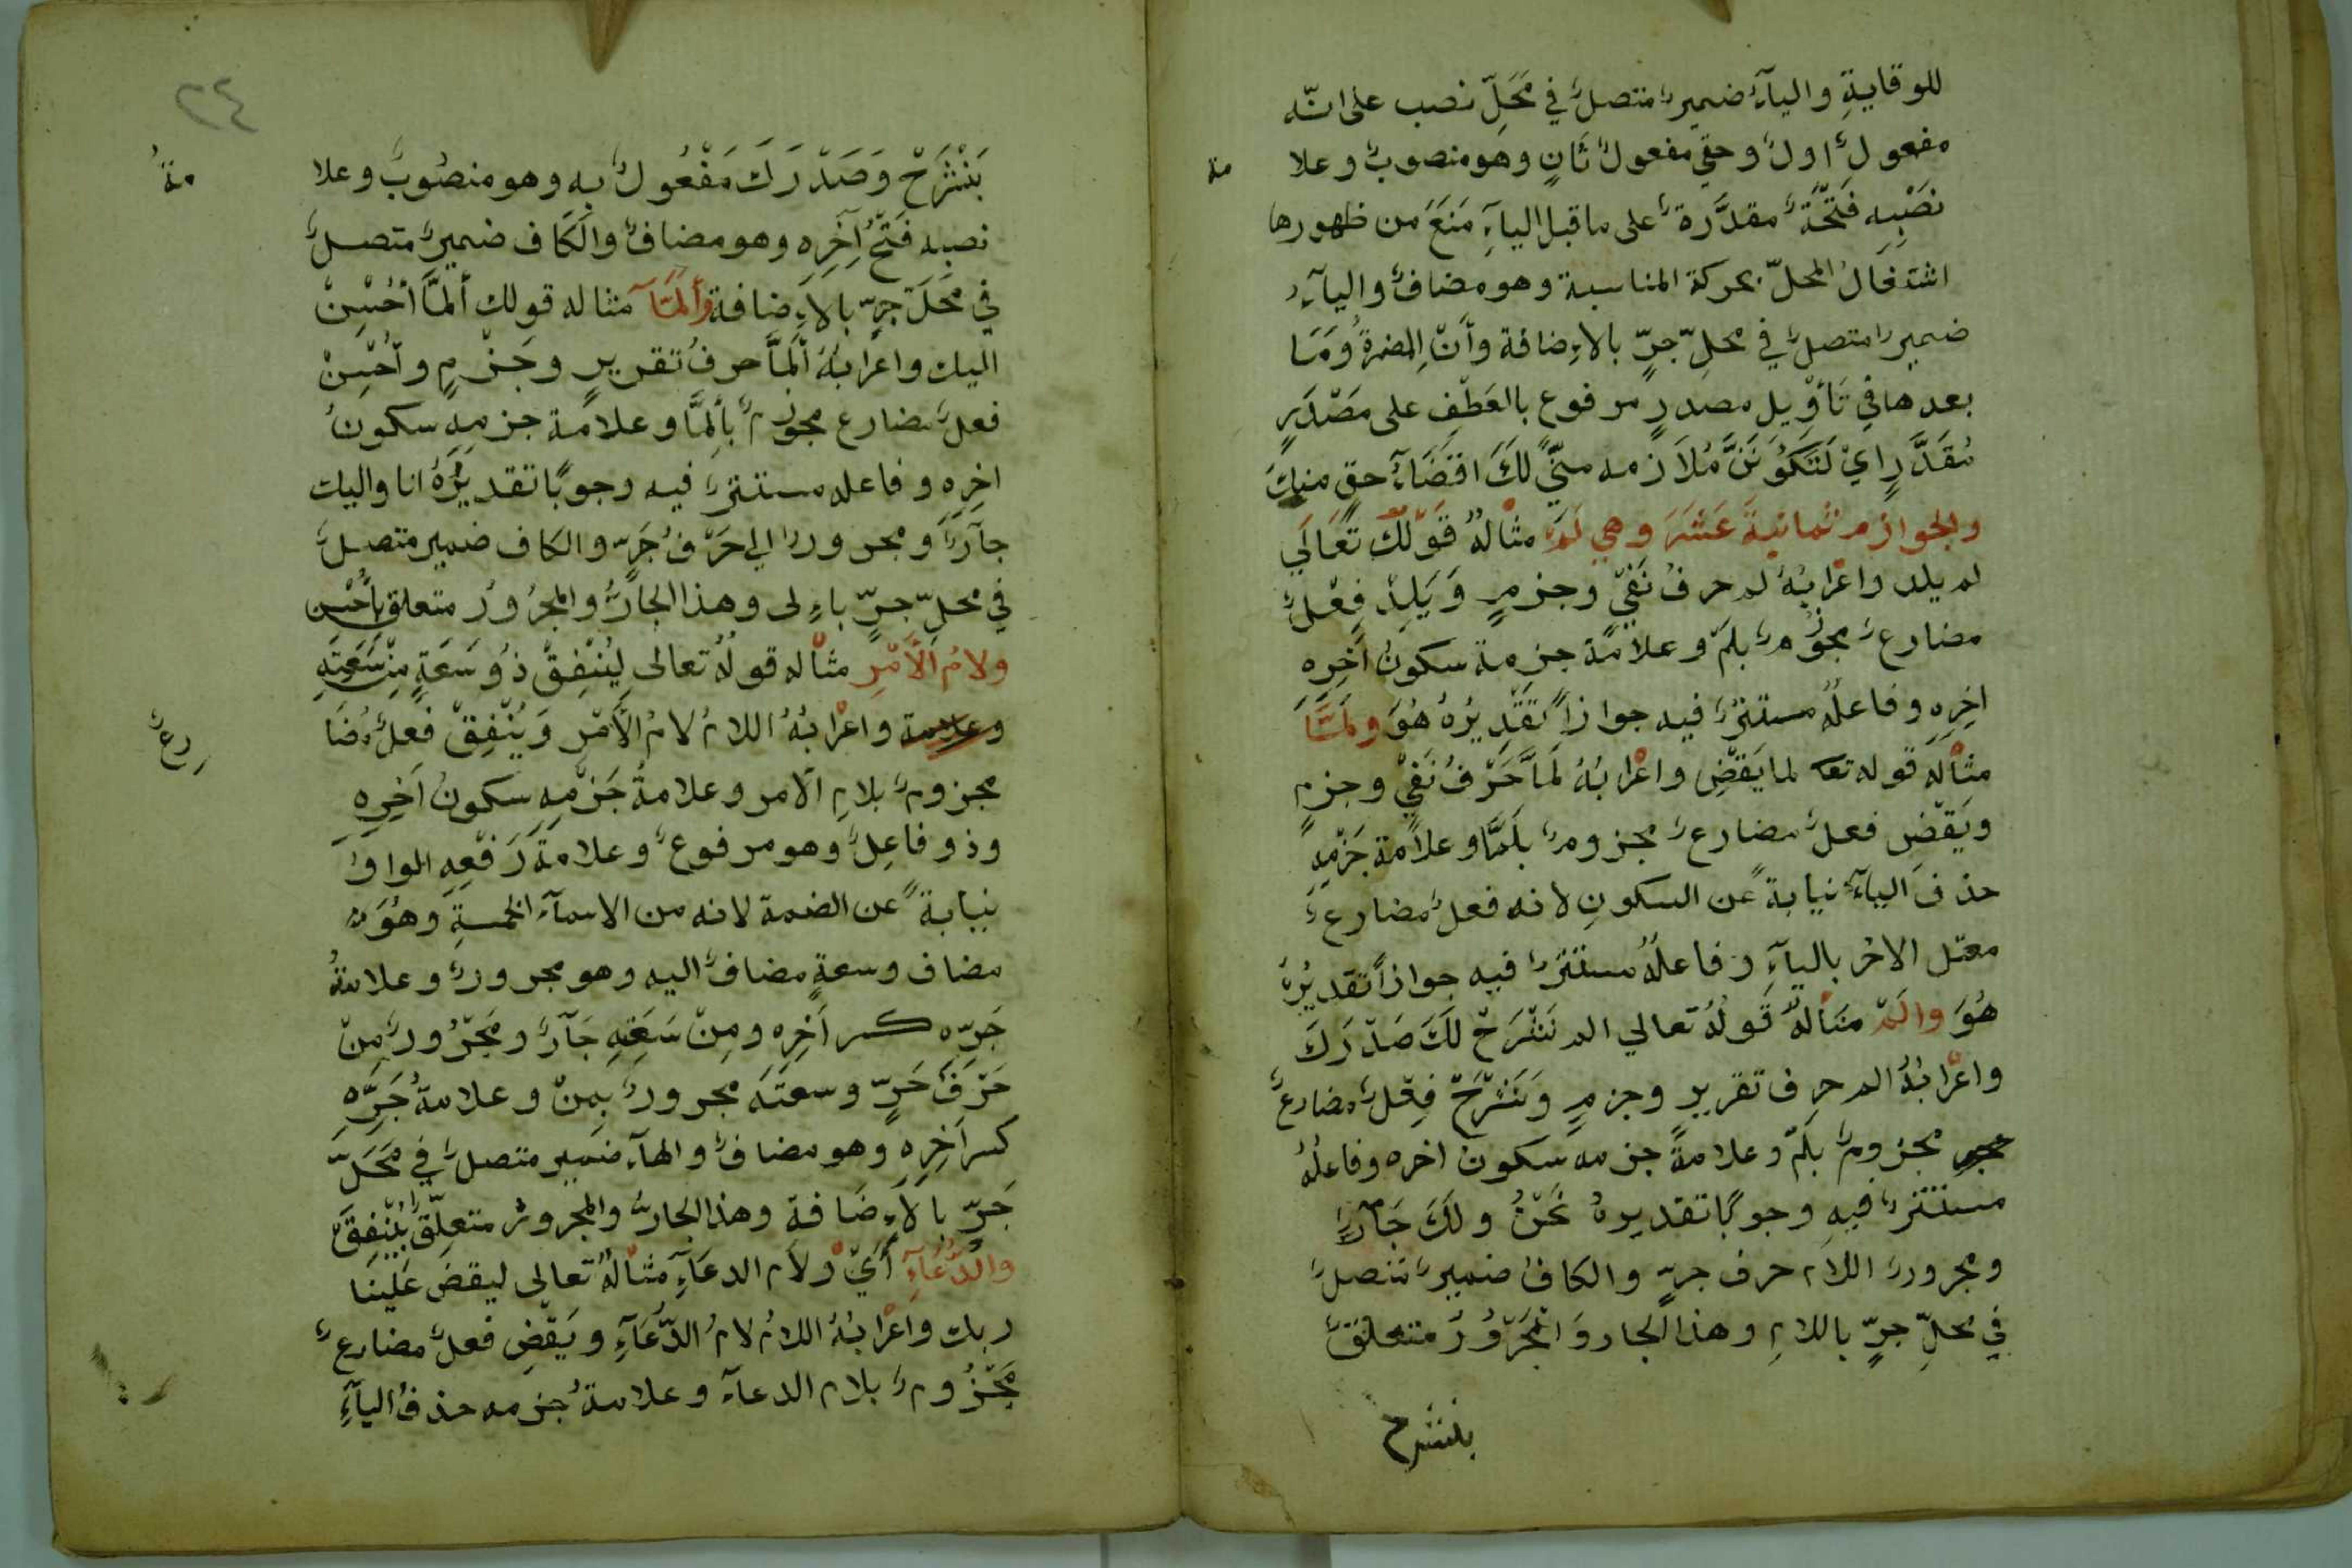 للوقايةِ واليآءُ ضميرٌ متصلٌ في مَحَلِّ نصب على انّه
مفعولٌ اولٌ وحقي مفعولٌ ثَانٍ وهو منصوبٌ وعلا
مة
نَصْبِهِ فَتْحَةٌ مقدَّرةٌ على ما قبل اليآءِ مَنَعَ من ظهورها
اشتغالُ المحلّ بحركة المناسبة وهو مضافٌ واليآءُ
ضميرٌ متصلٌ في محلِّ جرٍّ بالاءِضافة وأَنْ المضمرةُ وَمَا
بعدها في تَأوِيل مصدرٍ مرفوع بالعَطْفِ على مَصْدَرٍ
مُقَدَّرٍ ايْ لَتَكُونَنَّ مُلَازمه منّي لَكَ اقتضَآءُ حقٍ منكَ
والجوازم ثمانيةَ عَشَرَ وهي لَمْ مثالهُ قَوْلُكَ تَعَالَي
لم يلد واعْرَابُهُ لم حرفُ نَفْيٍ وجزمٍ وَيَلِدْ فِعْلٌ
مضارعٌ مجزُومٌ بلَمْ وعلامة جزمة سكونُ آخِرِه
اخِرِهِ وفاعلُهُ مستترٌ فيه جوازاً تَقْدِيرُهُ هُوَ ولَمَّا
مثالُه قوله تعا لما يَقْضِ واعْرَابُهُ لَمَّا حَرْفُ نَفْيٍ وجزمٍ
ويَقْضِ فعلٌ مضارعٌ مجزومٌ بلَمَّا وعلامة جَزْمِهِ
حذفُ اليآءِ نيابةً عن السكونِ لانه فعلٌ مضارعٌ
معتل الاخر باليآءِ وفاعلُهُ مستترٌ فيه جوازاً تقديرُهُ
هُوَ والَمْ مثالُهُ قَولُهُ تعالي الم نَشْرَحْ لَكَ صَدْرَكَ
واعْرابُهُ الم حرف تقريرٍ وجزمٍ وَنَشْرَحْ فِعْلٌ مضارعٌ
مجزومٌ بلَمْ وعلامةُ جزمه سكونُ اخره وفاعلُهُ
مستترٌ فيهِ وجوبًا تقديرهُ نَحْنُ ولَكَ جَآرٌّ
ومجرورٌ اللام حرف جرٍّ والكافُ ضميرٌ متصلٌ
في محلِّ جرٍّ باللامِ وهذا الجار وَالمَجْرُورُ متعلقٌ
بنشرح
٢٤
بَنَشْرَحْ وَصَدْرَكَ مَفْعُولٌ بهِ وهو منصُوبٌ وعلا
مةُ
نصبه فَتْحُ آخِرِهِ وهو مضافٌ والكَاف ضميرٌ متصلٌ
في مَحَلِّ جرٍّ بالاءِضافة وأَلَمَّا مثاله قولك ألمَّا اُحْسِنْ
اليك واعْرابُهُ ألَمَّا حرفُ تقريرٍ وجَزْمٍ واُحْسِنْ
فعلٌ مضارع مجزُومٌ بأَلَمَّا وعلامة جزمِهِ سكونُ
اخِرِهِ وفاعله مستترٌ فيه وجوبًا تقديرُهُ انا واليك
جآرٌّ ومجرورٌ الي حَرْفُ جَرّ والكاف ضمير متصلٌ
في محلّ جرٍّ باءِلى وهذا الجارُّ والمجرُورُ متعلق بأُحْسِن
ولامُ الأَمْرِ مثاله قولُهُ تعالى لِيُنْفِقْ ذُو سَعَةٍ مِنْ سَعَتِهِ
وعلامة واعْرابُهُ اللامُ لامُ الأَمْرِ وَيُنْفِقْ فِعلٌ مُضَا
رعٌ
مجزومٌ بلامِ الامر وعلامةُ جَزْمِهِ سكونُ اَخِرِهِ
وذو فاعِلٌ وهو مرفوعٌ وعلامةُ رَفْعِهِ الواوُ
نيابةً عن الضمة لانه من الاسمآء الخمسةِ وهُوَ
مضاف وسعةٍ مضافٌ اليه وهو مجرورٌ وعلامةُ
جَرّه كسر اَخِرِه ومِنْ سَعَتِهِ جَآرٌّ ومَجْرُورٌ مِنْ
حَرْفُ جَرٍّ وسعتِه مجرورٌ بِمِنْ وعلامةُ جَرِّهِ
كسر اَخِرِهِ وهو مضافٌ والهآء ضمير متصلٌ في مَحَلِّ
جَرٍّ بالاءِضَافةِ وهذا الجارُّ والمجرورُ متعلِّقٌ بيُنْفِقْ
والدُّعَآءِ أَيْ ولَام الدعَآءِ مثالُهُ تعالى ليقضِ عَلَيْنَا
ربك واعْرابُهُ اللامُ لامُ الدّعَآءِ ويَقْضِ فعلٌ مضارعٌ
مَجْزُومٌ بلام الدعآء وعلامةُ جزمه حذفُ اليآءِ